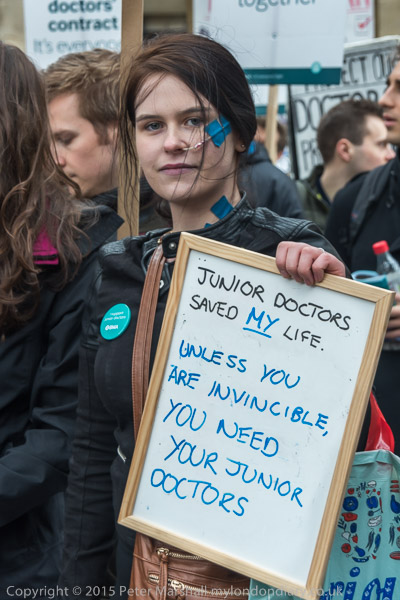 doctors'
contract
It's everyone
together
DOCTOR
JUNIOR DOCTORS
SAVED MY LIFE.
UNLESS YOU
ARE INVINCIBLE,
YOU NEED
YOUR JUNIOR
DOCTORS
BMA
Copyright © 2015 Peter Marshall mylondondiary.co.uk